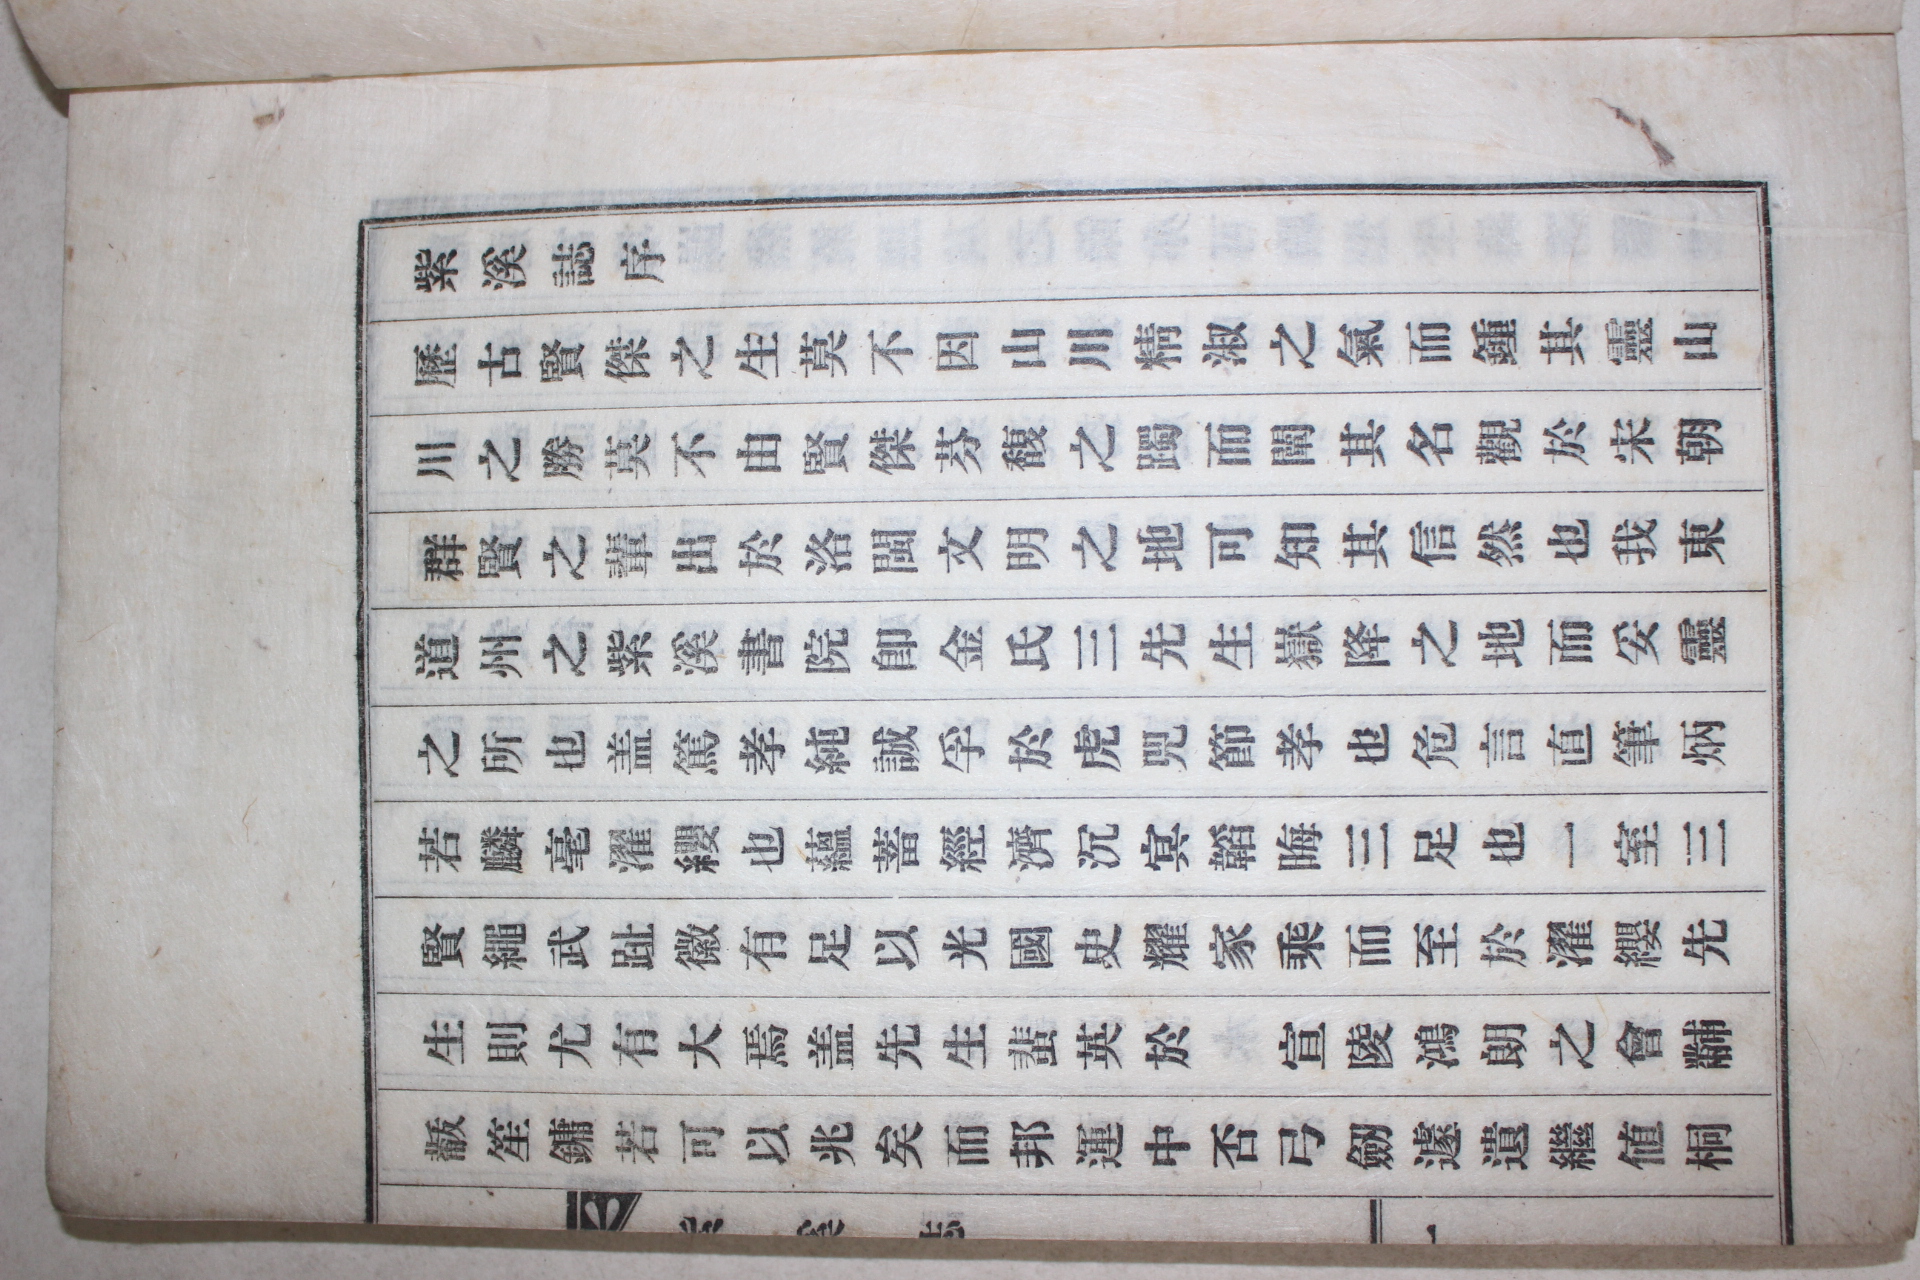 紫溪誌序
歷古賢傑之生莫不因山川精淑之氣而鍾其靈山
川之勝莫不由賢傑芬馥之躅而闡其名觀於宋朝
群賢之輩出於洛閩文明之地可知其信然也我東
道州之紫溪書院卽金氏三先生嶽降之地而妥靈
之所也盖篤孝純誠孚於虎兕節孝也危言直筆炳
若麟毫濯纓也蘊蓄經濟沉冥韜晦三足也一室三
賢繩武趾徽有足以光國史耀家乘而至於濯纓先
生則尤有大焉盖先生蜚英於 宣陵鴻朗之會黼
黻笙鏞若可以兆矣而邦運中否弓劒遽遺繼値桐
紫溪誌 一